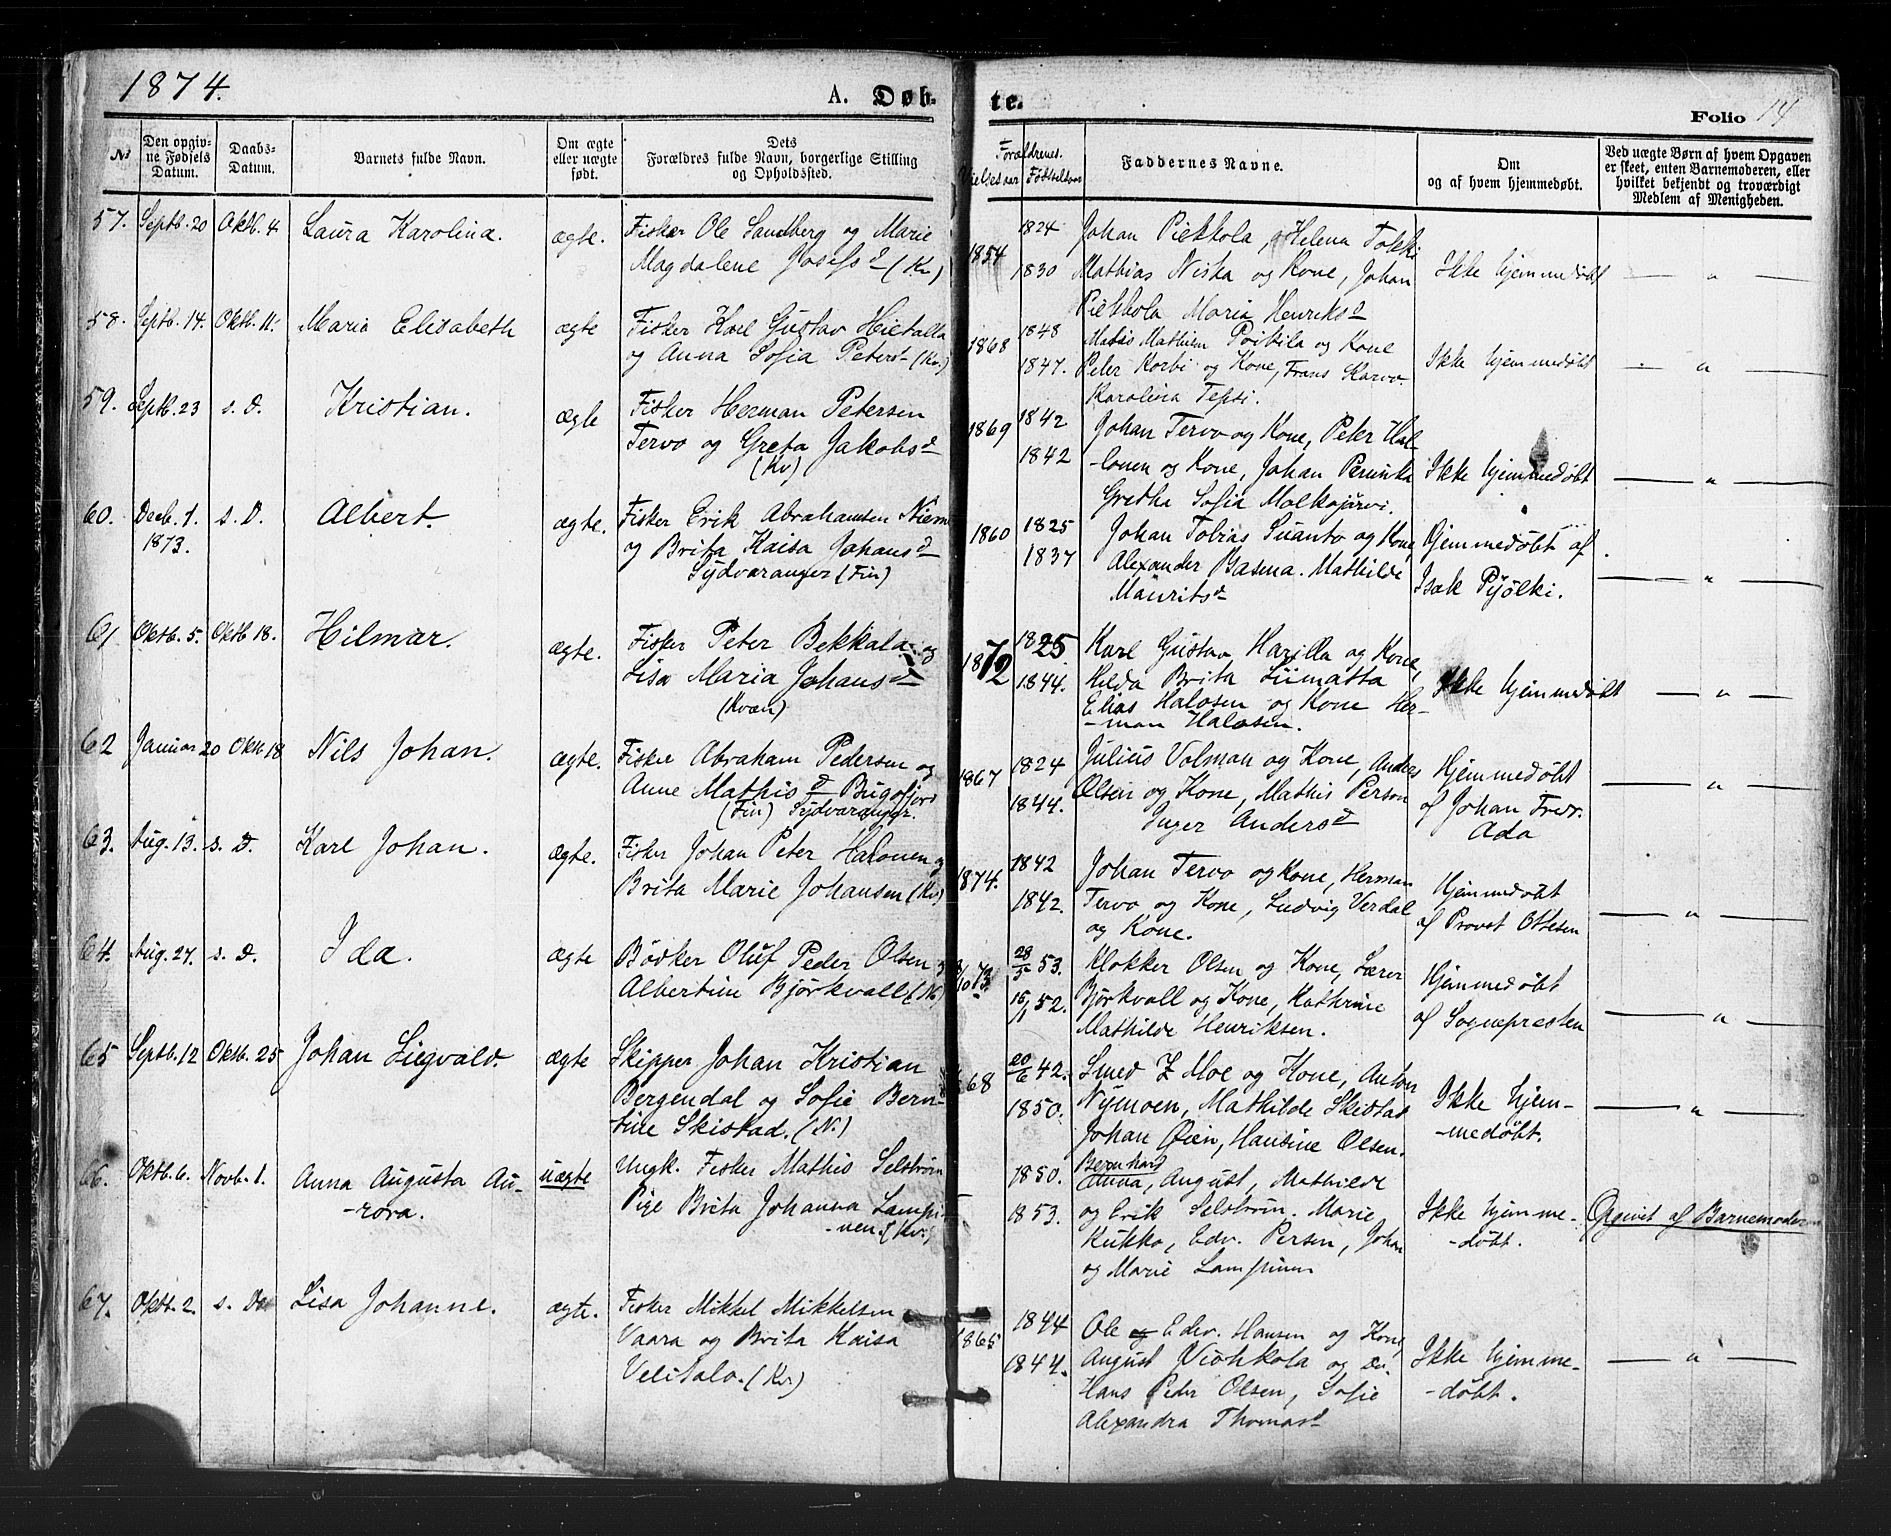 1874.
A. Døb-
te.
Folio 14
№
Den opgiv-
ne Fødsels
Datum.
Daabs-
Datum.
Barnets fulde Navn.
Om ægte
eller uægte
født.
Dets
Forældres fulde Navn, borgerlige Stilling
og Opholdssted.
Forældrenes
Vielsesaar Fødselsaar
Faddernes Navne.
Om
og af hvem hjemmedøbt.
Ved uægte Børn af hvem Opgaven
er skeet, enten Barnemoderen, eller
hvilket bekjendt og troværdigt
Medlem af Menigheden.
57. Septb. 20 Oktb. 4. Laura Karolina. ægte. Fisker Ole Sandberg og Marie
Magdalene Josefsd (Kv)
1854 1824 1830
Johan Piekkola, Helena Tokki
Mathias Niska og Kone, Johan
Piekkola Maria Henriksd
Ikke hjemmedøbt — " —
58. Septb. 14. Oktb. 11. Maria Elisabeth ægte Fisker Karl Gustav Hietalla
og Anna Sofia Petersd (Kv.)
1868 1848 1847.
Mathis Mathisen Poikila og Kone
Peter Korbi og Kone, Frans Karvo
Karolina Tepsi.
Ikke hjemmedøbt — " —
59. Septb. 23 s. D. Kristian. ægte Fisker Herman Petersen
Tervo og Greta Jakobsd
(Kv)
1869 1842 1842
Johan Tervo og Kone, Peter Hal-
-onen og Kone, Johan Peruska
Gretha Sofia Molkojärvi.
Ikke hjemmedøbt — " —
60. Decb. 1. s. D. Albert. ægte. Fisker Erik Abrahamsen Niemi
1873.
og Brita Kaisa Johansd
Sydvaranger (Fin)
1860 1825 1837
Johan Tobias Suanto og Kone,
Alexander Basma. Mathilde
Mauritsd
Hjemmedøbt af
Isak Pyölki. — " —
61 Oktb. 5. Oktb 18. Hilmar. ægte. Fisker Peter Bekkala og
Lisa Maria Johansd
(Kvæn)
1872 1825 1844.
Karl Gustav Harilla og Kone,
Hilda Brita Liimatta
Elias Halosen og Kone Her-
-man Halosen.
Ikke hjemmedøbt — " —
62 Januar 20 Oktb. 18 Nils Johan. ægte. Fisker Abraham Pedersen og
Anne Mathisd Bugøfjord
(Fin) Sydvaranger.
1867 1824 1844.
Julius Volman og Kone, Anders
Olsen og Kone, Mathis Person
Inger Andersd
Hjemmedøbt
af Johan Fredr.
Ada — " —
63. Aug. 13. s. D. Karl Johan. ægte. Fisker Johan Peter Halonen og
Brita Marie Johansen (Kv)
1874. 1842 1842.
Johan Tervo og Kone, Herman
Tervo og Kone, Ludvig Verdal
og Kone.
Hjemmedøbt
af Provst Ottesen — " —
64. Aug. 27. s. D. Ida. ægte Bødker Oluf Peder Olsen og
Albertine Björkvall (N.)
73. 28/5 53. 15/1 52.
Klokker Olsen og Kone, Lærer
Björkvall og Kone, Kathrine
Mathilde Henriksen.
Hjemmedøbt
af Sognepresten — " —
65 Septb. 12 Oktb. 25 Johan Sigvald. ægte Skipper Johan Kristian
Bergendal og Sofie Bern-
tine Skistad. (N.)
68 20/6 42. 1850.
Smed Z Moe og Kone, Anton
Nymoen, Mathilde Skistad
Johan Øien, Hansine Olsen.
Ikke hjem-
-medøbt. — " —
66. Oktb. 6. Novb. 1. Anna Augusta Au-
-rora. uægte Ungk. Fisker Mathis Selström
Pige Brita Johanna Lampi-
-nen. (Kv.)
1850. 1853.
Bernhard
Anna, August, Mathilde
og Erik Selström. Marie
Kukko, Edv. Persen, Johan
og Marie Lampinen
Ikke hjemme-
-døbt. Opgivet af Barnemoderen
67. Oktb. 2. s. Do Lisa Johanne. ægte. Fisker Mikkel Mikkelsen
Vaara og Brita Kaisa
Velitalo. (Kv)
1865 1844 1844.
Ole og Edv. Hansen og Kone,
August Niohkola og Do
Hans Peter Olsen, Sofie
Alexandra Thomasd
Ikke hjemme-
-døbt. — " —